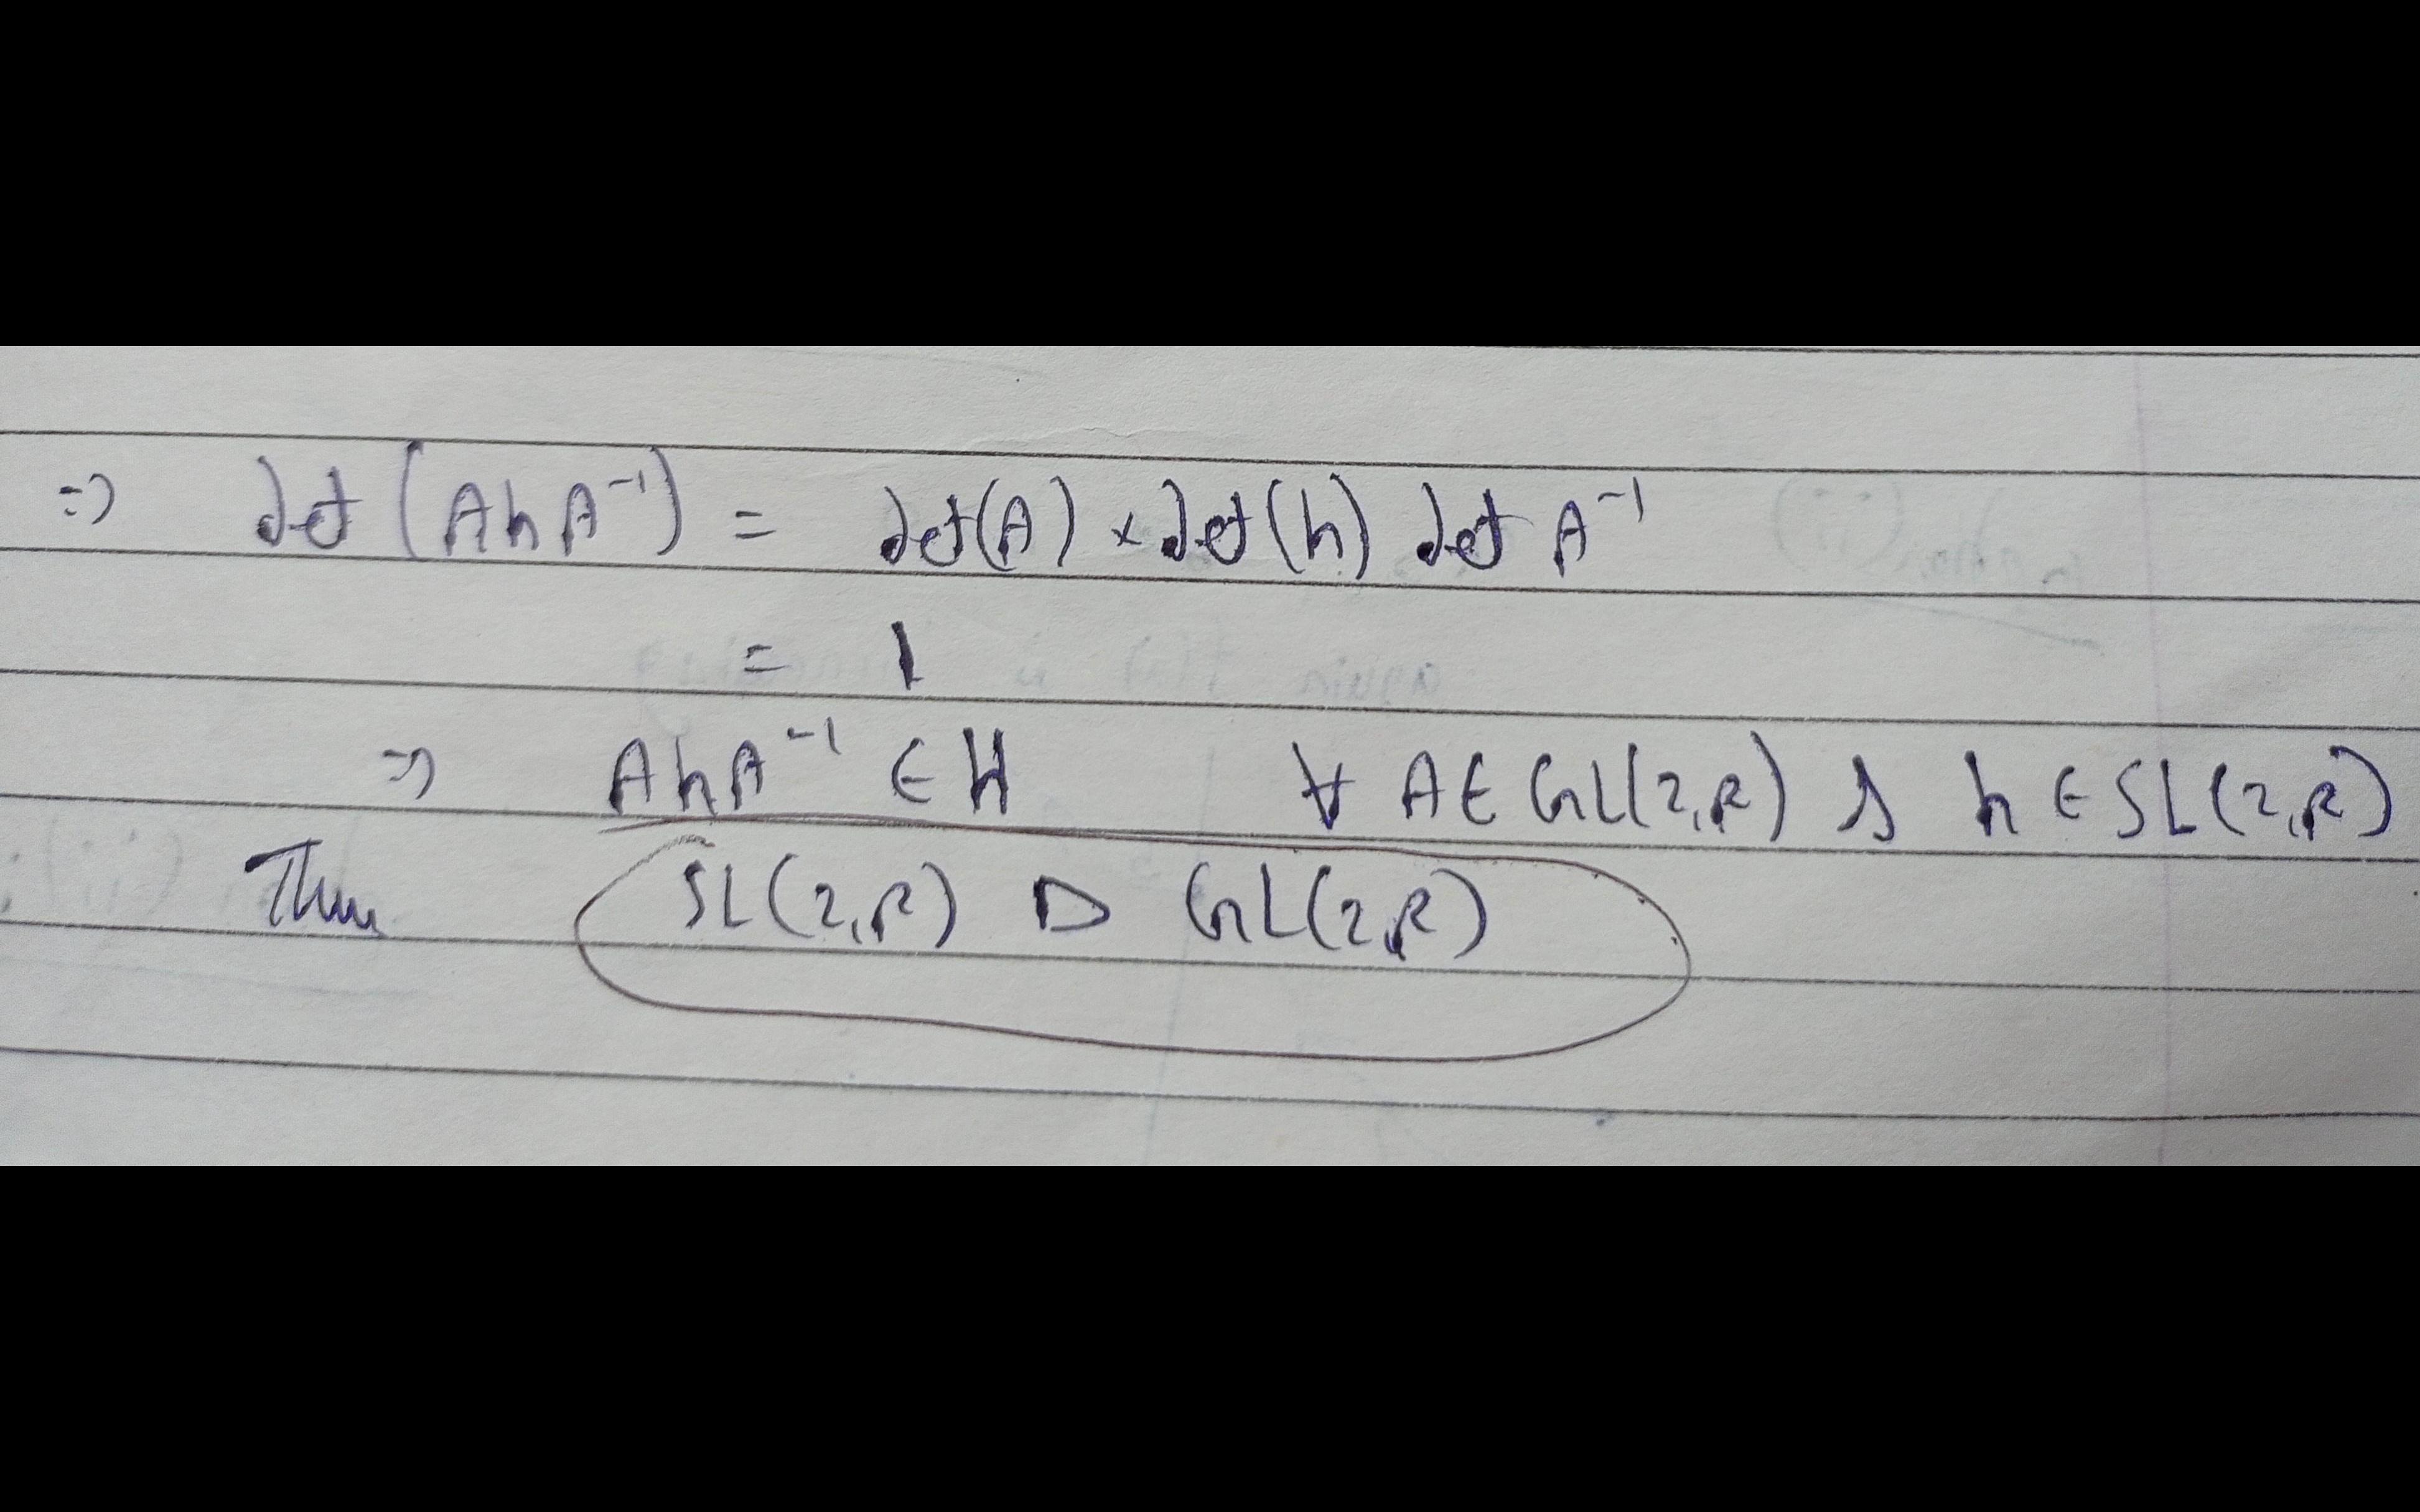 ⇒ det (AhA⁻¹) = det(A) × det(h) det A⁻¹
= 1
⇒ AhA⁻¹ ∈ H ∀ A ∈ GL(2,R) & h ∈ SL(2,R)
Thus SL(2,R) ▷ GL(2,R)